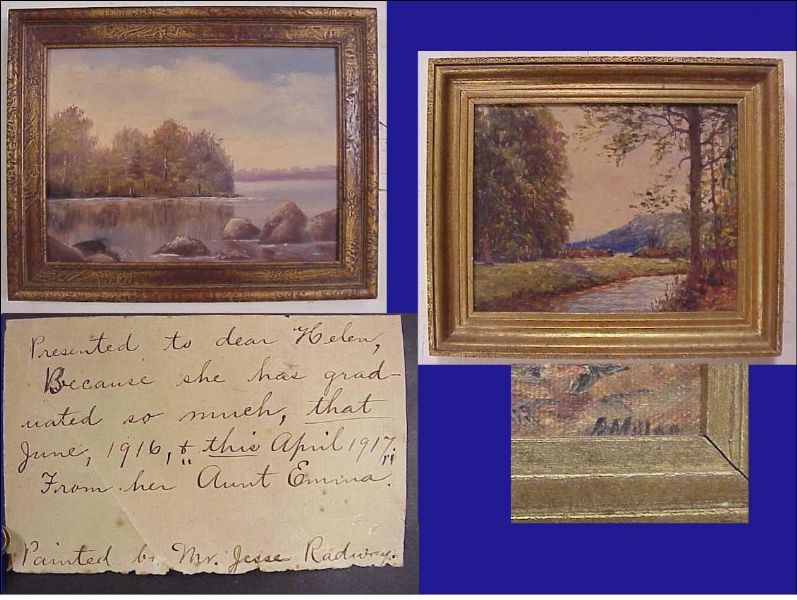 Presented to dear Helen,
Because she has grad-
uated so much, that
June, 1916, & this April 1917."
From her Aunt Emma.
Painted by Mr. Jesse Radway.